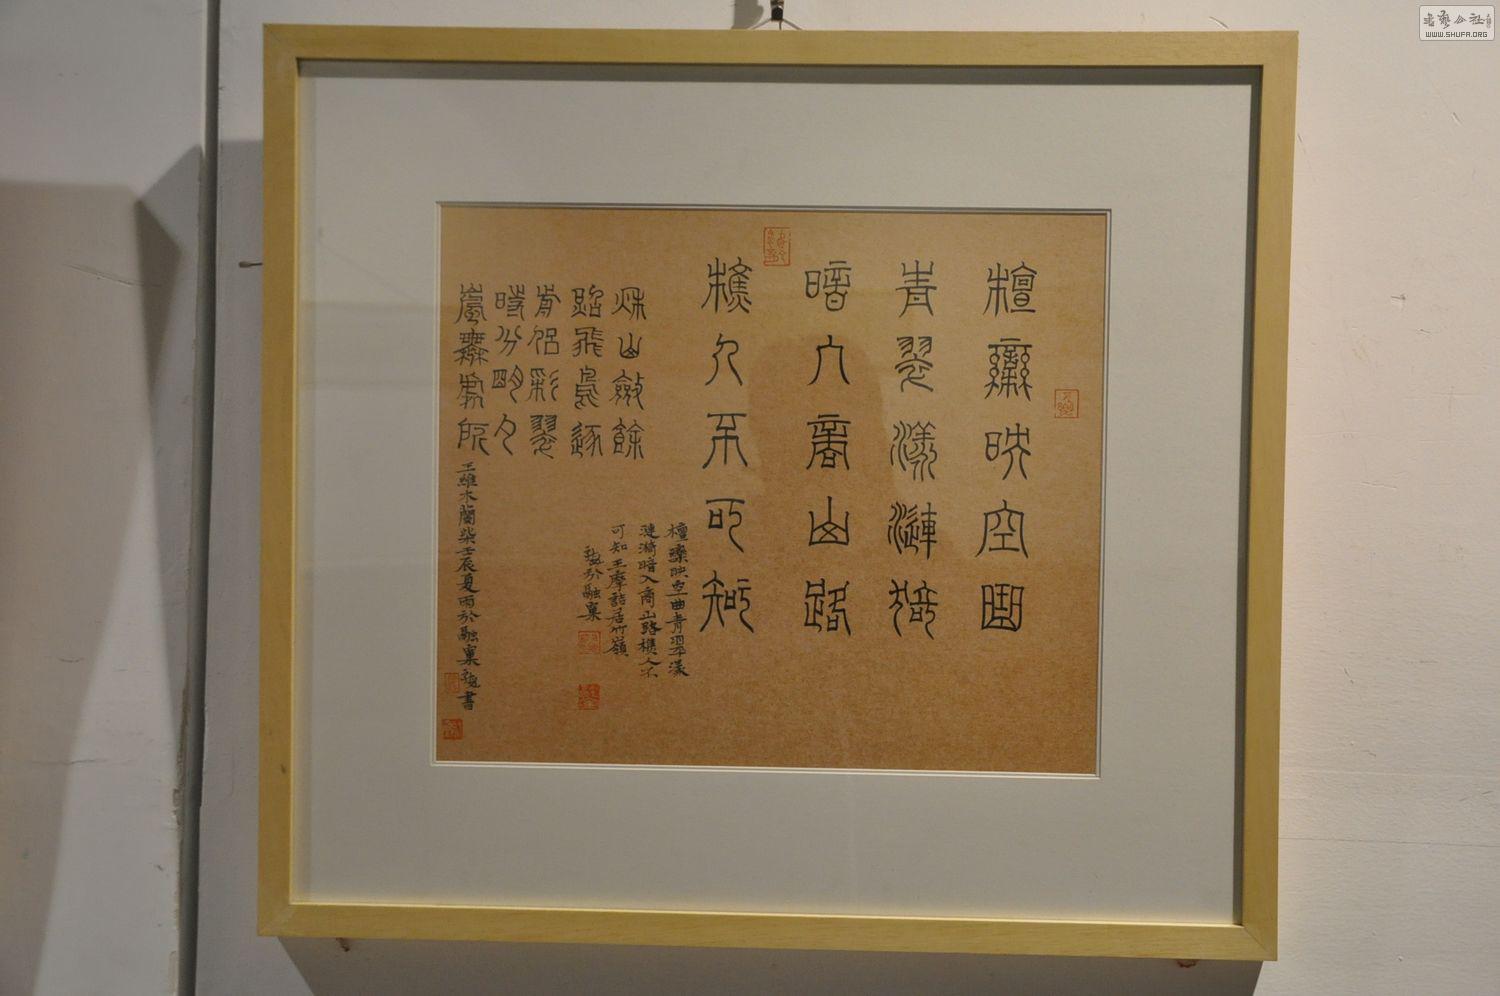 檀欒映空曲
青翠漾漣漪
暗入商山路
樵人不可知
檀欒映空曲青翠漾
漣漪暗入商山路樵人不
可知王摩詰居竹嶺
於融巢
秋山斂餘
照飛鳥逐
前侶彩翠
時分明夕
嵐無處所
王維木蘭柴壬辰夏雨於融巢 書
書藝公社
WWW.SHUFA.ORG